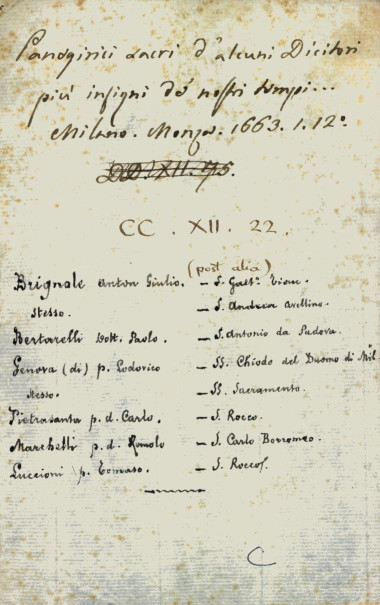 Panegirici sacri d'alcuni Dicitori
più insigni de' nostri tempi...
Milano. Monza. 1663. 1. 12º
DD. XII. 75.
CC . XII . 22 .
(post alia)
Brignale Anton Giulio. — S. Gaetº. Tiene.
Stesso. — S. Andrea Avellino.
Bertarelli Dott. Paolo. — S. Antonio da Padova.
Genova (di) p. Lodovico — SS. Chiodo del Duomo di Mil.
Stesso. — SS. Sacramento.
Pietrasanta p. d. Carlo. — S. Rocco.
Marchelli p. d. Romolo — S. Carlo Borromeo.
Luccioni p. Tomaso. — S. Rocco.
C